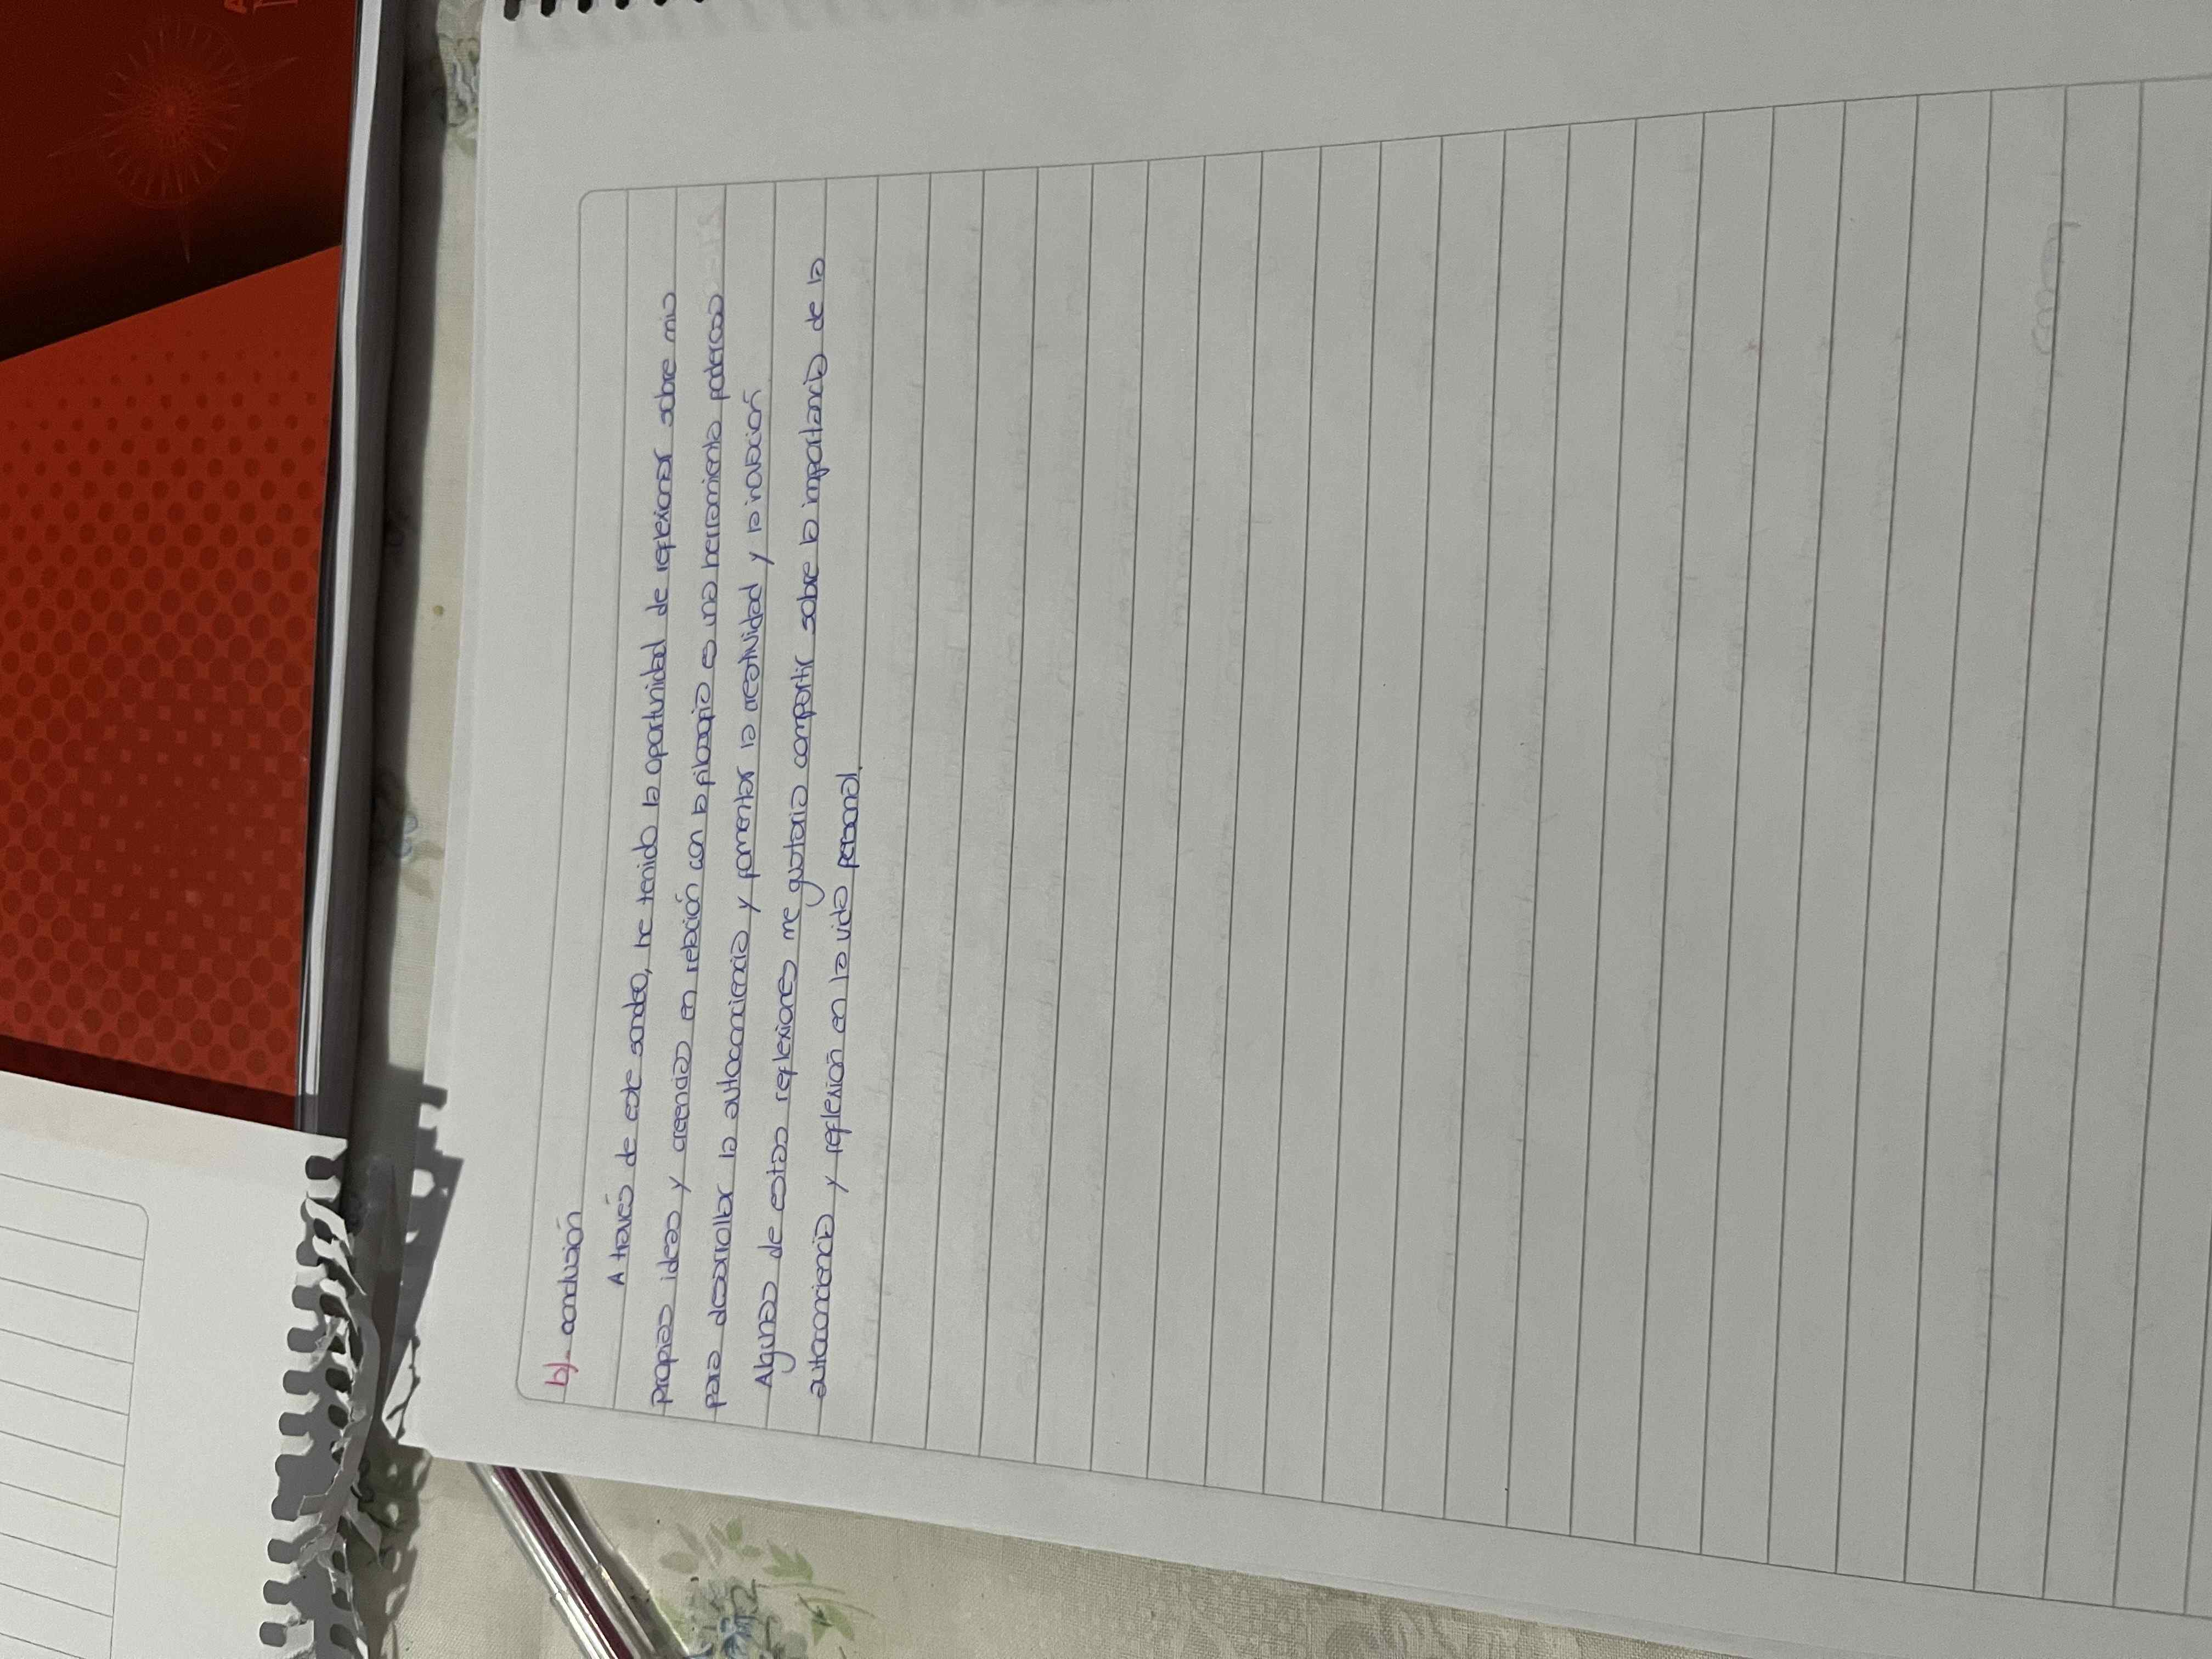 b)- conclusión
A través de este sondeo, he tenido la oportunidad de reflexionar sobre mis
propias ideas y creencias en relación con la filosofía es una herramienta poderosa
para desarrollar la autoconciencia y fomentar la creatividad y la inovación
Algunas de estas reflexiones me gustaria compartir sobre la importancia de la
autoconciencia y reflexión en la vida personal.